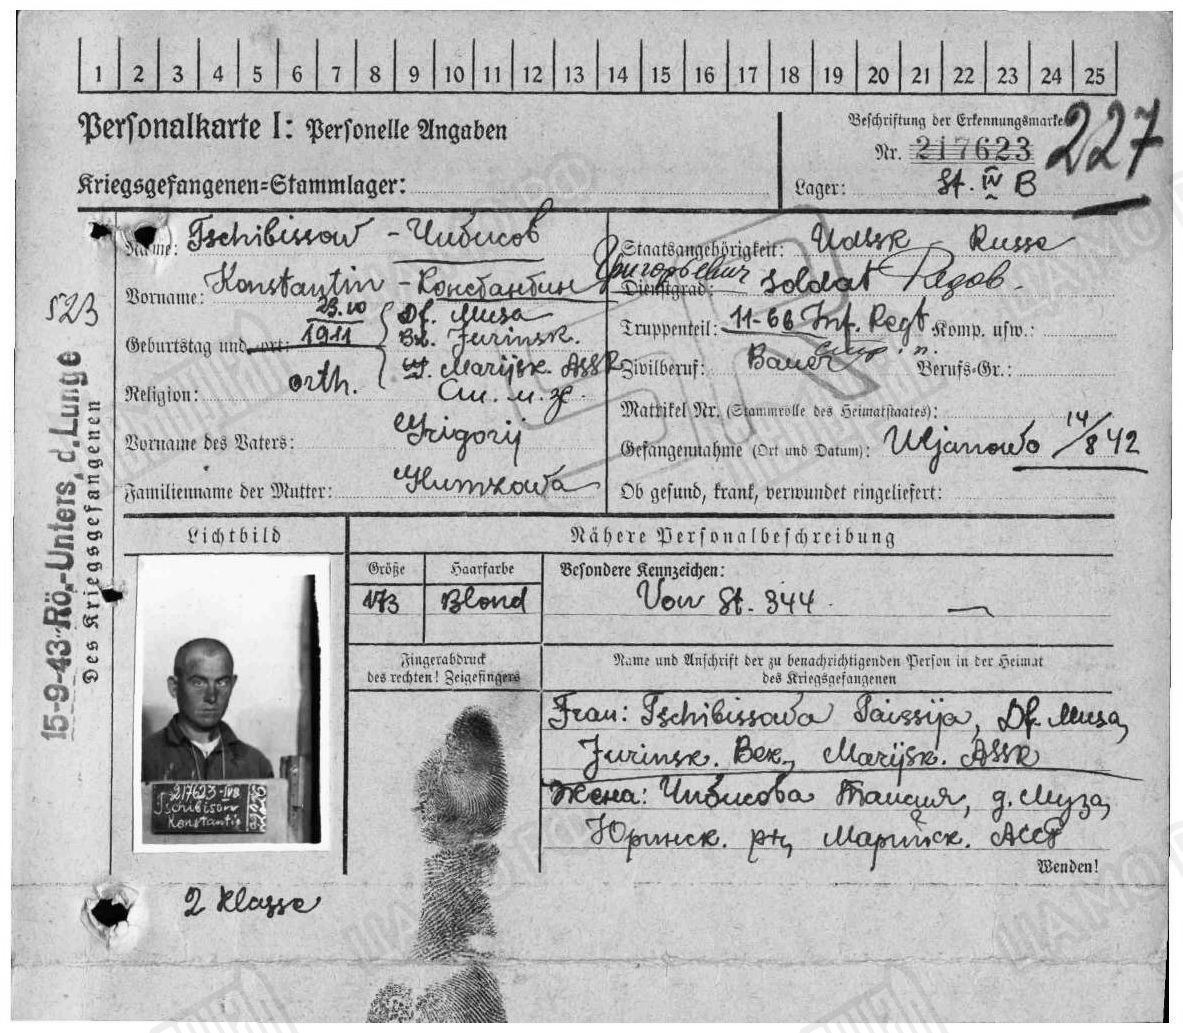 1 2 3 4 5 6 7 8 9 10 11 12 13 14 15 16 17 18 19 20 21 22 23 24 25
Personalkarte I: Personelle Angaben
Beschriftung der Erkennungsmarke
Nr. 217623
227
Kriegsgefangenen-Stammlager:
Lager: St. IV B
Name: Tschibissow - Чибисов
Staatsangehörigkeit: UdSSR Russe
Vorname: Konstantin - Константин Григорьевич
Dienstgrad: Soldat Рядов.
523
Geburtstag und -ort: 1911 Df. Musa
Jurinsk.
Marijsk. ASSR
Truppenteil: 11-66 Inf. Regt Komp. usw.:
Zivilberuf: Bauer Berufs-Gr.:
Religion: orth.
Matrikel Nr. (Stammrolle des Heimatstaates):
Vorname des Vaters: Grigorij
Gefangennahme (Ort und Datum): Uljanowo 14/8 42
Familienname der Mutter:
Ob gesund, krank, verwundet eingeliefert:
15-9-43 Rö.-Unters. d. Lunge
Des Kriegsgefangenen
Lichtbild
Nähere Personalbeschreibung
Größe Haarfarbe Besondere Kennzeichen:
173 Blond Von St. 344
Fingerabdruck
des rechten! Zeigefingers
Name und Anschrift der zu benachrichtigenden Person in der Heimat
des Kriegsgefangenen
Frau: Tschibissowa Taissija, Df. Musa,
Jurinsk. Bek., Marijsk. ASSR
Жена: Чибисова Таисия, д. Муза,
Юринск. рн, Марийск. АССР
Wenden!
217623-IVB
Tschibisow
Konstantin
2 Klasse
ЦАМО РФ